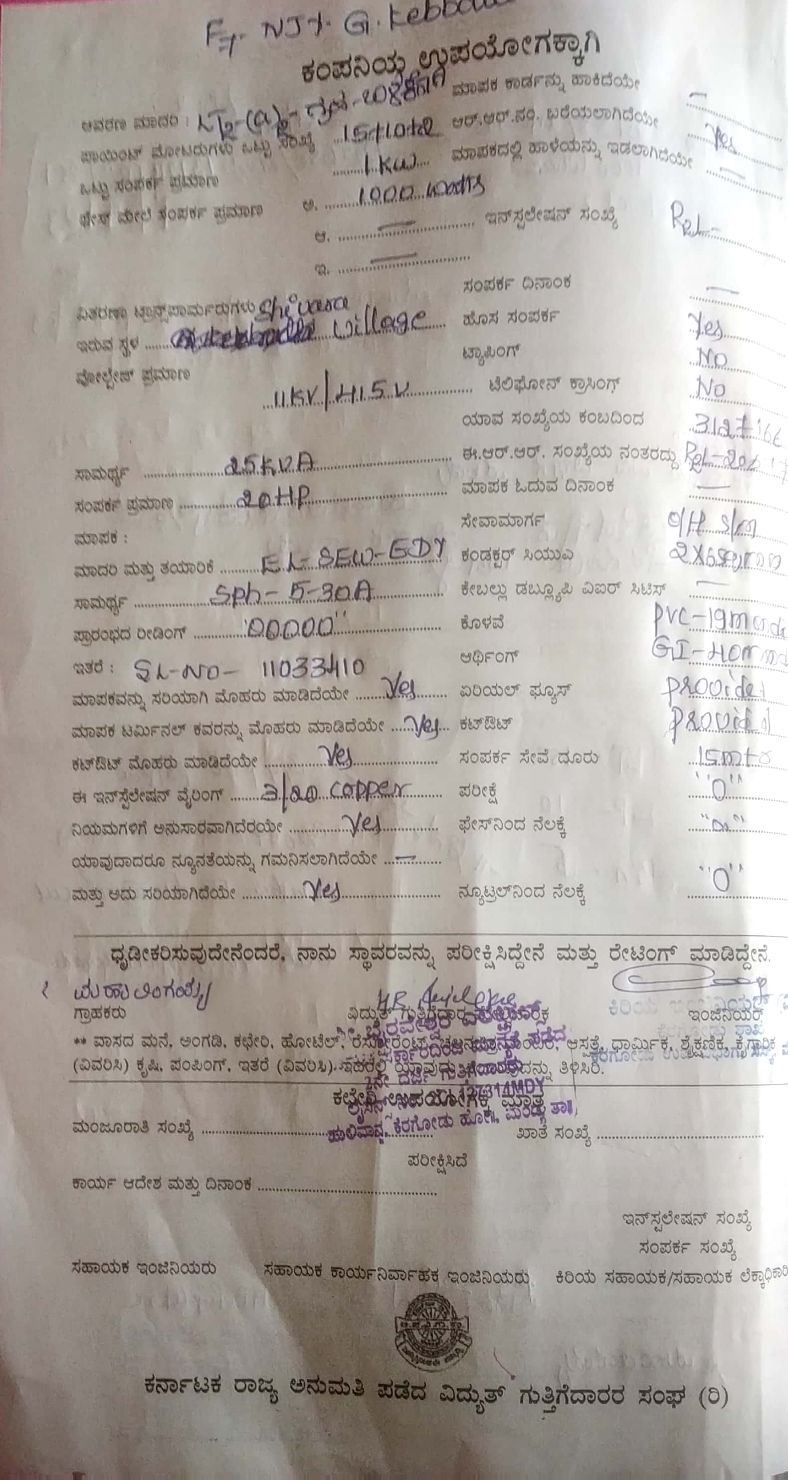 F7. NJY. G. Kebba
ಕಂಪನಿಯ ಉಪಯೋಗಕ್ಕಾಗಿ
ಆವರಣ ಮಾದರಿ : ಮಾಪಕ ಕಾರ್ಡನ್ನು ಹಾಕಿದೆಯೇ —
ಪಾಯಿಂಟ್ ಮೋಟರುಗಳು ಒಟ್ಟು ಸಂಖ್ಯೆ ಆರ್.ಆರ್.ನಂ. ಬರೆಯಲಾಗಿದೆಯೇ Yes
ಒಟ್ಟು ಸಂಪರ್ಕ ಪ್ರಮಾಣ 1 KW ಮಾಪಕದಲ್ಲಿ ಹಾಳೆಯನ್ನು ಇಡಲಾಗಿದೆಯೇ —
ಫೇಸ್ ಮೇಲೆ ಸಂಪರ್ಕ ಪ್ರಮಾಣ ಅ. 1000 watts
ಆ. — ಇನ್‌ಸ್ಟಲೇಷನ್ ಸಂಖ್ಯೆ R2L-
ಇ. —
ಸಂಪರ್ಕ ದಿನಾಂಕ —
ವಿತರಣಾ ಟ್ರಾನ್ಸ್‌ಫಾರ್ಮರುಗಳು Shivara
ಇರುವ ಸ್ಥಳ Village ಹೊಸ ಸಂಪರ್ಕ Yes
ವೋಲ್ಟೇಜ್ ಪ್ರಮಾಣ ಟ್ಯಾಪಿಂಗ್ NO
11KV/415V ಟೆಲಿಫೋನ್ ಕ್ರಾಸಿಂಗ್ NO
ಯಾವ ಸಂಖ್ಯೆಯ ಕಂಬದಿಂದ
ಸಾಮರ್ಥ್ಯ 25KVA ಈ.ಆರ್.ಆರ್. ಸಂಖ್ಯೆಯ ನಂತರದ್ದು
ಸಂಪರ್ಕ ಪ್ರಮಾಣ 20HP ಮಾಪಕ ಓದುವ ದಿನಾಂಕ —
ಮಾಪಕ : ಸೇವಾಮಾರ್ಗ O/H S/m
ಮಾದರಿ ಮತ್ತು ತಯಾರಿಕೆ EL-SEW-EDY ಕಂಡಕ್ಟರ್ ಸಿಯುಎ
ಸಾಮರ್ಥ್ಯ Sph-5-30A ಕೇಬಲ್ಲು ಡಬ್ಲ್ಯೂಪಿ ವಿಐರ್ ಸಿಟಿಸ್ —
ಪ್ರಾರಂಭದ ರೀಡಿಂಗ್ "00000" ಕೊಳವೆ
ಇತರೆ : SL-NO- 11033410 ಅರ್ಥಿಂಗ್
ಮಾಪಕವನ್ನು ಸರಿಯಾಗಿ ಮೊಹರು ಮಾಡಿದೆಯೇ Yes ಏರಿಯಲ್ ಫ್ಯೂಸ್ provided
ಮಾಪಕ ಟರ್ಮಿನಲ್ ಕವರನ್ನು ಮೊಹರು ಮಾಡಿದೆಯೇ Yes ಕಟ್‌ಔಟ್
ಕಟ್‌ಔಟ್ ಮೊಹರು ಮಾಡಿದೆಯೇ Yes ಸಂಪರ್ಕ ಸೇವೆ ದೂರು 15mt
ಈ ಇನ್‌ಸ್ಟೆಲೇಷನ್ ವೈರಿಂಗ್ 3/20 copper ಪರೀಕ್ಷೆ "0"
ನಿಯಮಗಳಿಗೆ ಅನುಸಾರವಾಗಿದೆರಯೇ Yes ಫೇಸ್‌ನಿಂದ ನೆಲಕ್ಕೆ
ಯಾವುದಾದರೂ ನ್ಯೂನತೆಯನ್ನು ಗಮನಿಸಲಾಗಿದೆಯೇ —
ಮತ್ತು ಅದು ಸರಿಯಾಗಿದೆಯೇ Yes ನ್ಯೂಟ್ರಲ್‌ನಿಂದ ನೆಲಕ್ಕೆ "0"
ಧೃಡೀಕರಿಸುವುದೇನೆಂದರೆ, ನಾನು ಸ್ಥಾವರವನ್ನು ಪರೀಕ್ಷಿಸಿದ್ದೇನೆ ಮತ್ತು ರೇಟಿಂಗ್ ಮಾಡಿದ್ದೇನೆ.
ಮಹಾಲಿಂಗಯ್ಯ
ಗ್ರಾಹಕರು ವಿದ್ಯುತ್ ಗುತ್ತಿಗೆದಾರ ಇಂಜಿನಿಯರ್
** ವಾಸದ ಮನೆ, ಅಂಗಡಿ, ಕಛೇರಿ, ಹೋಟೆಲ್, ಆಸ್ಪತ್ರೆ, ಧಾರ್ಮಿಕ, ಶೈಕ್ಷಣಿಕ, ಕೈಗಾರಿಕ
(ವಿವರಿಸಿ) ಕೃಷಿ, ಪಂಪಿಂಗ್, ಇತರೆ (ವಿವರಿಸಿ) ತಿಳಿಸಿರಿ.
ಕಛೇರಿ ಉಪಯೋಗಕ್ಕೆ ಮಾತ್ರ
ಹುಲಿವಾನ, ಕೆರಗೋಡು ಹೋ||, ಮಂಡ್ಯ ತಾ||
ಮಂಜೂರಾತಿ ಸಂಖ್ಯೆ ಖಾತೆ ಸಂಖ್ಯೆ
ಪರೀಕ್ಷಿಸಿದೆ
ಕಾರ್ಯ ಆದೇಶ ಮತ್ತು ದಿನಾಂಕ
ಇನ್‌ಸ್ಟಲೇಷನ್ ಸಂಖ್ಯೆ
ಸಂಪರ್ಕ ಸಂಖ್ಯೆ
ಸಹಾಯಕ ಇಂಜಿನಿಯರು ಸಹಾಯಕ ಕಾರ್ಯನಿರ್ವಾಹಕ ಇಂಜಿನಿಯರು ಕಿರಿಯ ಸಹಾಯಕ/ಸಹಾಯಕ ಲೆಕ್ಕಾಧಿಕಾರಿ
ಕರ್ನಾಟಕ ರಾಜ್ಯ ಅನುಮತಿ ಪಡೆದ ವಿದ್ಯುತ್ ಗುತ್ತಿಗೆದಾರರ ಸಂಘ (ರಿ)